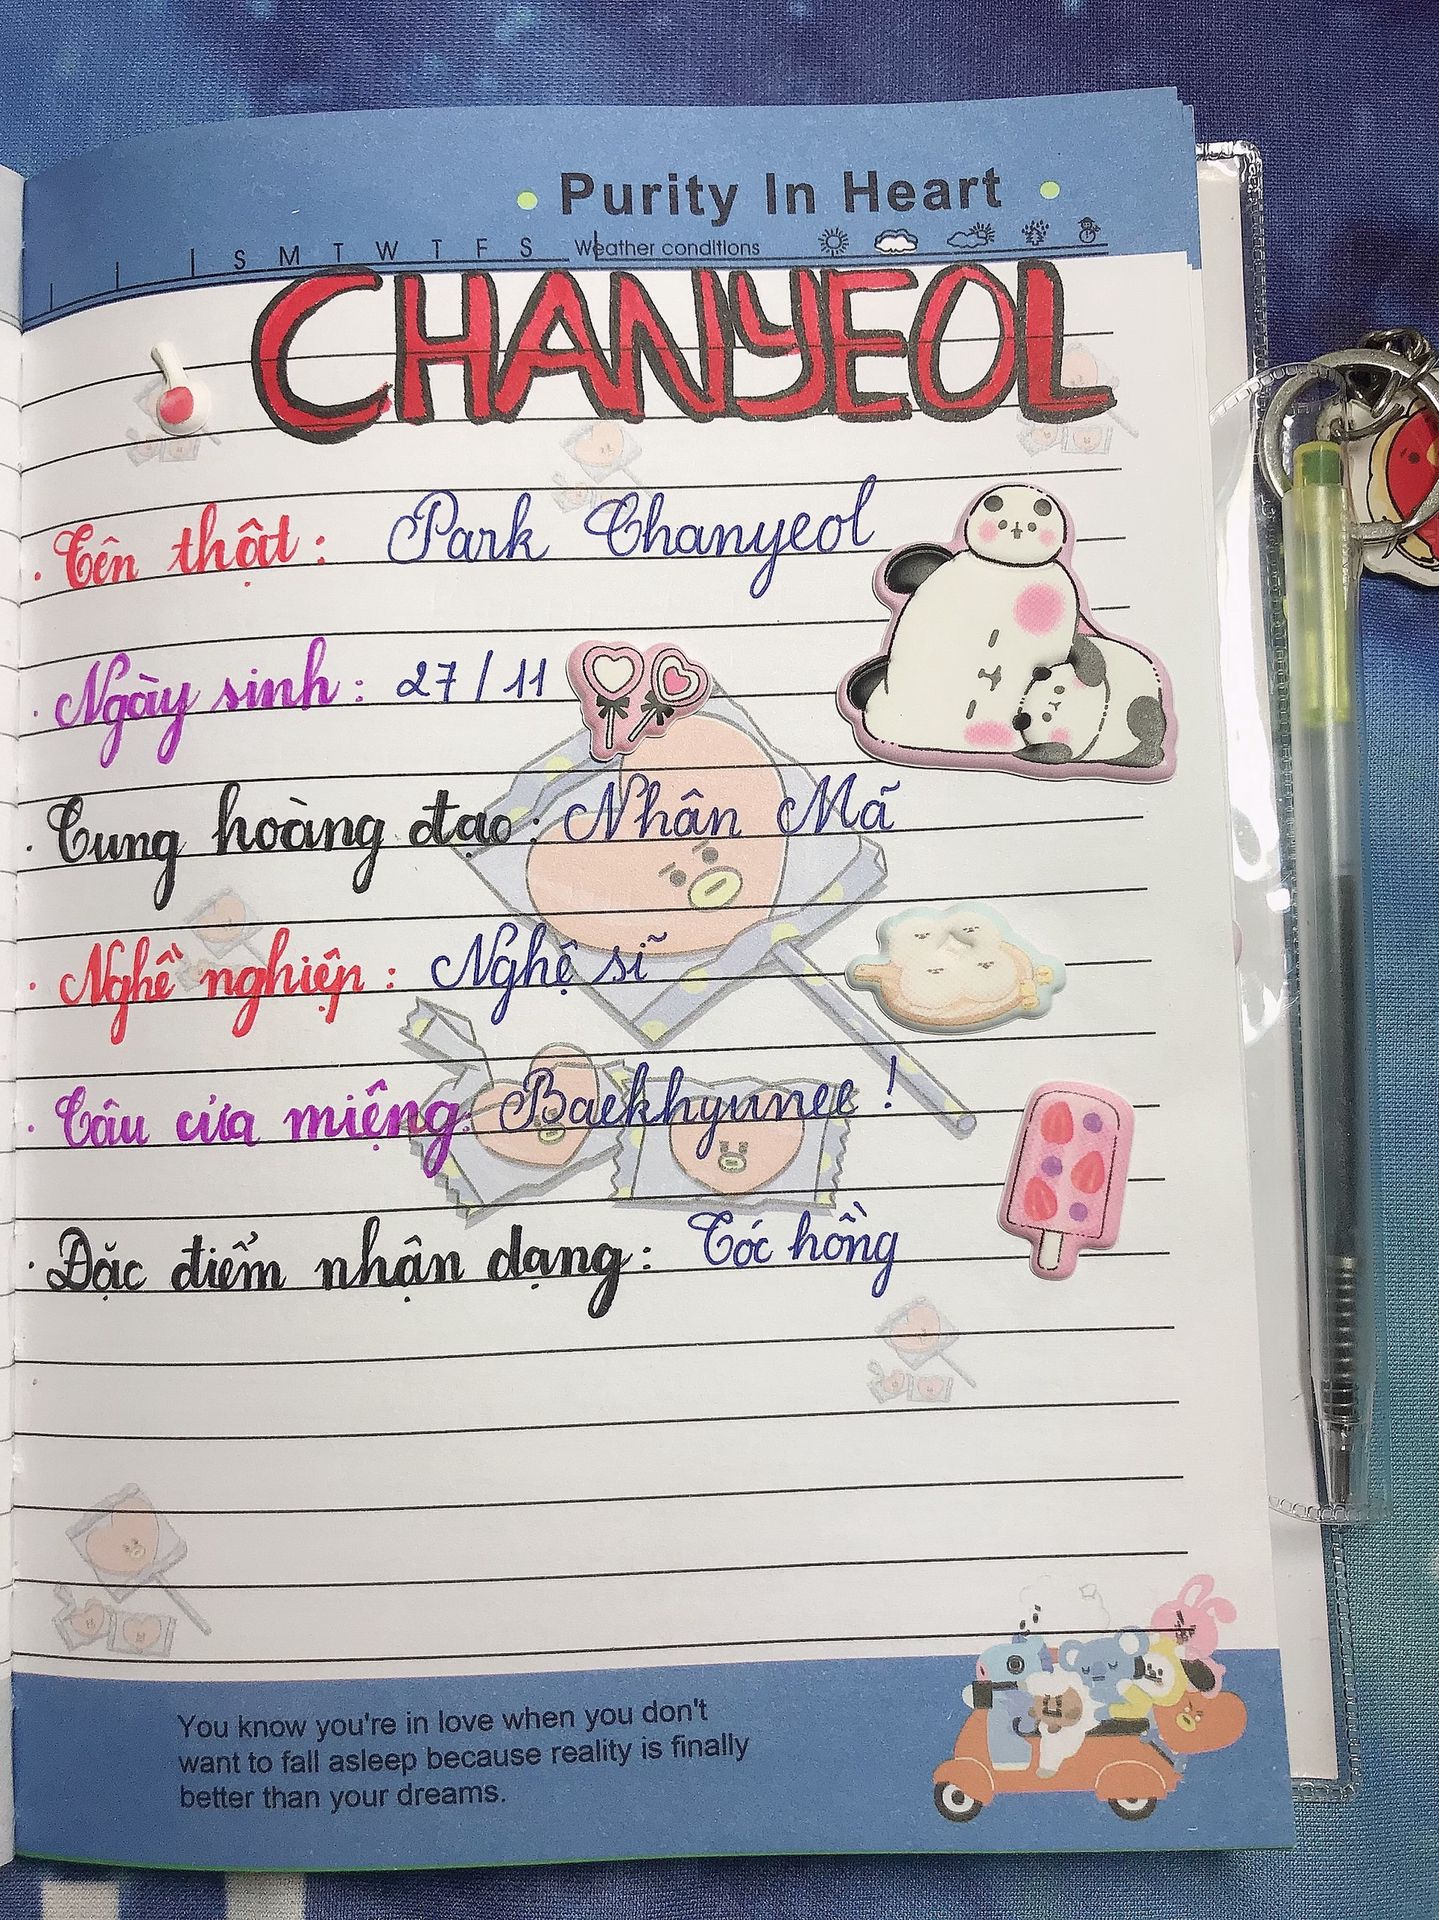 Purity In Heart
S M T W T F S Weather conditions
CHANYEOL
· Tên thật : Park Chanyeol
· Ngày sinh : 27/11
· Cung hoàng đạo : Nhân Mã
· Nghề nghiệp : Nghệ sĩ
· Câu cửa miệng : Baekhyunee !
· Đặc điểm nhận dạng : Tóc hồng
You know you're in love when you don't
want to fall asleep because reality is finally
better than your dreams.